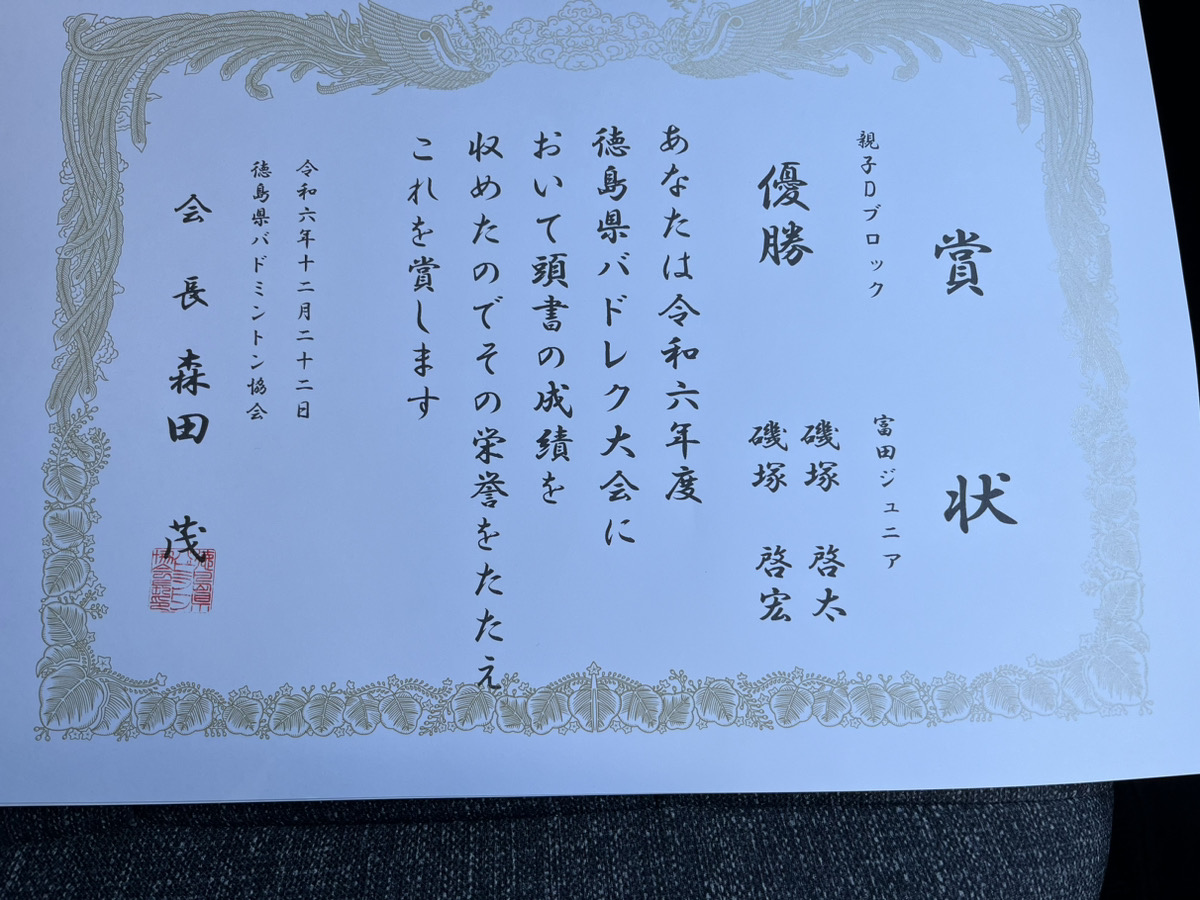 賞状
親子Dブロック 富田ジュニア
優勝 磯塚 啓太
磯塚 啓宏
あなたは令和六年度
徳島県バドレク大会に
おいて頭書の成績を
収めたのでその栄誉をたたえ
これを賞します
令和六年十二月二十二日
徳島県バドミントン協会
会長 森田 茂